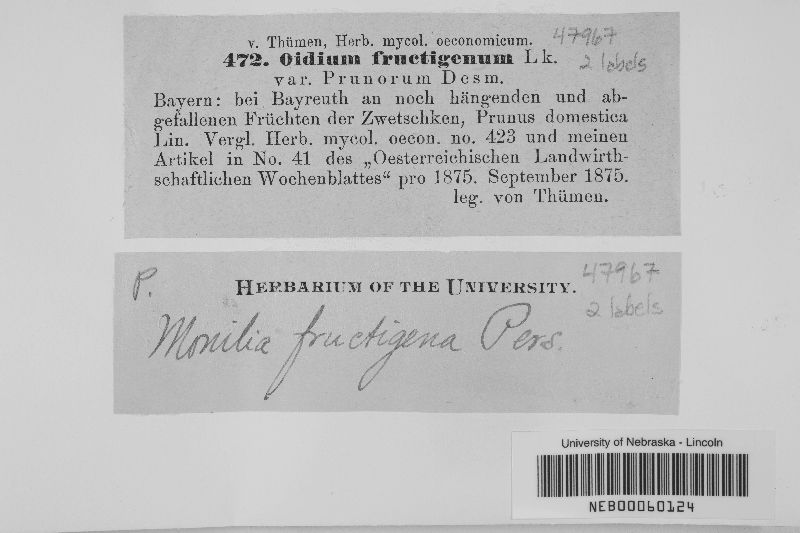 v. Thümen, Herb. mycol. oeconomicum. 47967
472. Oidium fructigenum Lk. 2 labels
var. Prunorum Desm.
Bayern: bei Bayreuth an noch hängenden und ab-
gefallenen Früchten der Zwetschken, Prunus domestica
Lin. Vergl. Herb. mycol. oecon. no. 423 und meinen
Artikel in No. 41 des „Oesterreichischen Landwirth-
schaftlichen Wochenblattes“ pro 1875. September 1875.
leg. von Thümen.
P. HERBARIUM OF THE UNIVERSITY. 47967
2 labels
Monilia fructigena Pers.
University of Nebraska - Lincoln
NEB00060124